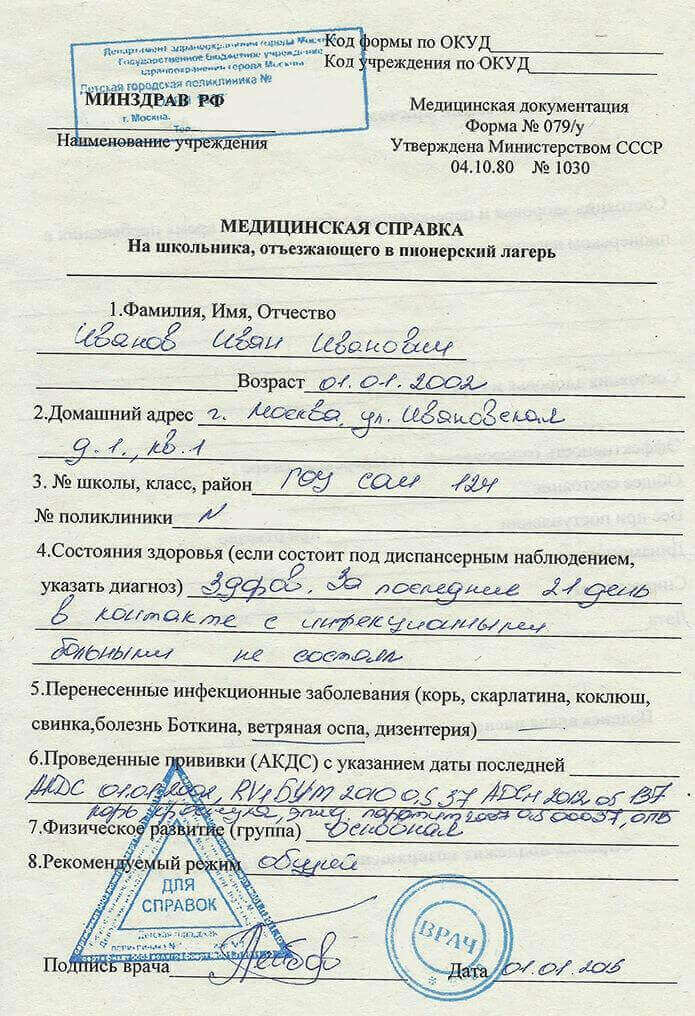 Департамент здравоохранения города Москвы
Государственное бюджетное учреждение
здравоохранения города Москвы
Детская городская поликлиника №
г. Москва.
Тел.
Код формы по ОКУД
Код учреждения по ОКУД
МИНЗДРАВ РФ
Наименование учреждения
Медицинская документация
Форма № 079/у
Утверждена Министерством СССР
04.10.80 № 1030
МЕДИЦИНСКАЯ СПРАВКА
На школьника, отъезжающего в пионерский лагерь
1.Фамилия, Имя, Отчество
Иванов Иван Иванович
Возраст 01.01.2002
2.Домашний адрес г. Москва, ул. Ивановская
д.1., кв.1
3. № школы, класс, район ГОУ СОШ 124
№ поликлиники N
4.Состояния здоровья (если состоит под диспансерным наблюдением,
указать диагноз) Здоров. За последние 21 день
в контакте с инфекционными
больными не состоял
5.Перенесенные инфекционные заболевания (корь, скарлатина, коклюш,
свинка,болезнь Боткина, ветряная оспа, дизентерия)
6.Проведенные прививки (АКДС) с указанием даты последней
АКДС 01.01.2002, RV1 2010 0,5 37 АДСН 2012 05 137
корь краснуха, эпид. паротит 2007 0,5 00037,
7.Физическое развитие (группа) основная
8.Рекомендуемый режим общий
ДЛЯ
СПРАВОК
Детская городская
поликлиника №
ВРАЧ
Подпись врача
Дата 01.01.2015